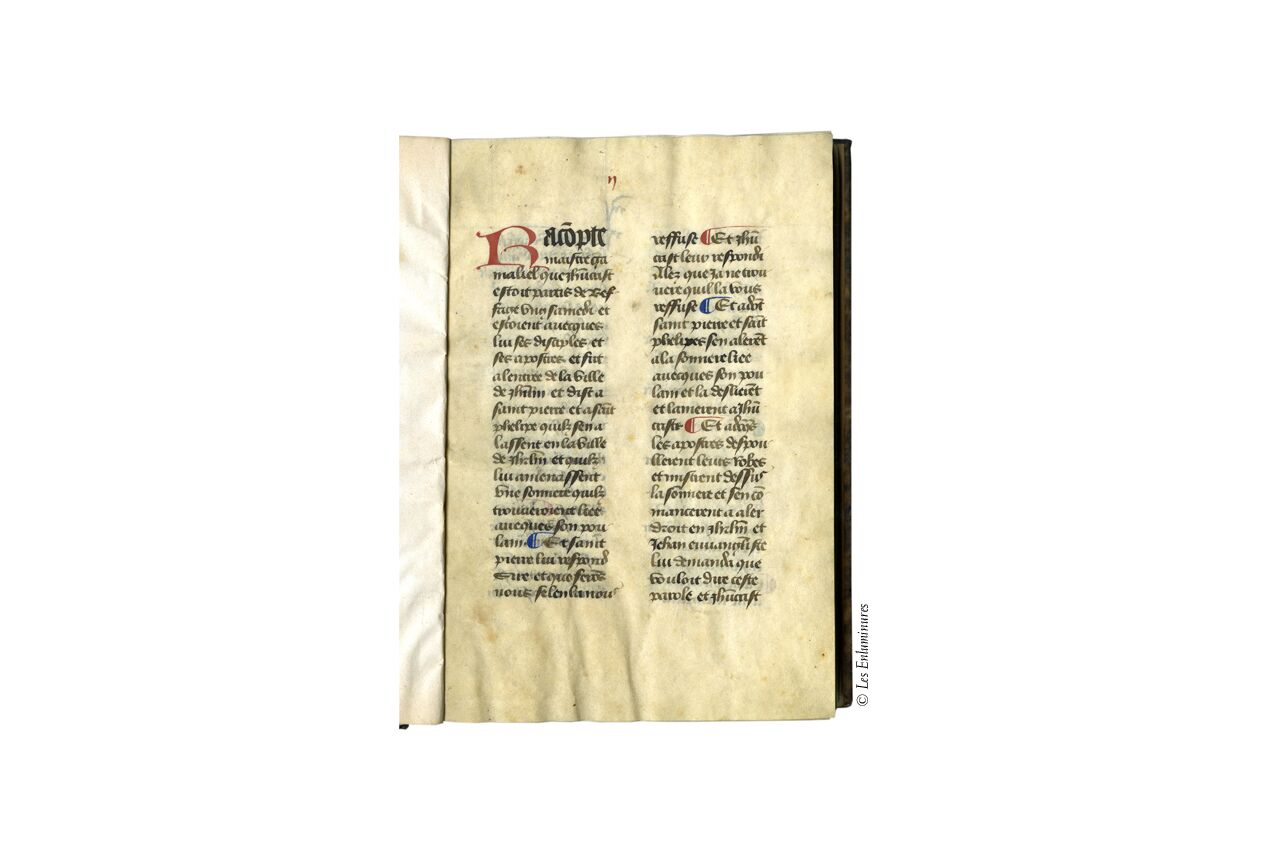 n
Racõpte
maistre ga
maliel que jhũcrist
estoit partis de Ref
faye vng samedi et
estoient auecques
lui ses disciples et
ses apostres et fut
a lentree de la ville
de jhrlm et dist a
saint pierre et a saĩt
phelipe quilz sen a
lassent en la ville
de jhrlm et quilz
lui amenassent
vne sonniere quilz
trouueroient liee
auecques son pou
lam ¶ Et saint
pierre lui respond
Sire et que serõs
nous se len la nous
reffuse ¶ Et jhũ
crist leur respondi
Alez que ja ne trou
uere qui la vous
reffuse ¶ Et adõt
saint pierre et saĩt
phelipes sen alerẽt
a la sonniere liee
auecques son pou
lam et la deslierẽt
et lamerent a jhũ
crist ¶ Et adõcs
les apostres despou
llerent leurs robes
et mistrent dessus
la sonniere et sen cõ
mancerent a aler
droit en jhrlm et
Jehan euuangliste
lui demanda que
vouloit dire ceste
parole et jhũcrist
© Les Enluminures